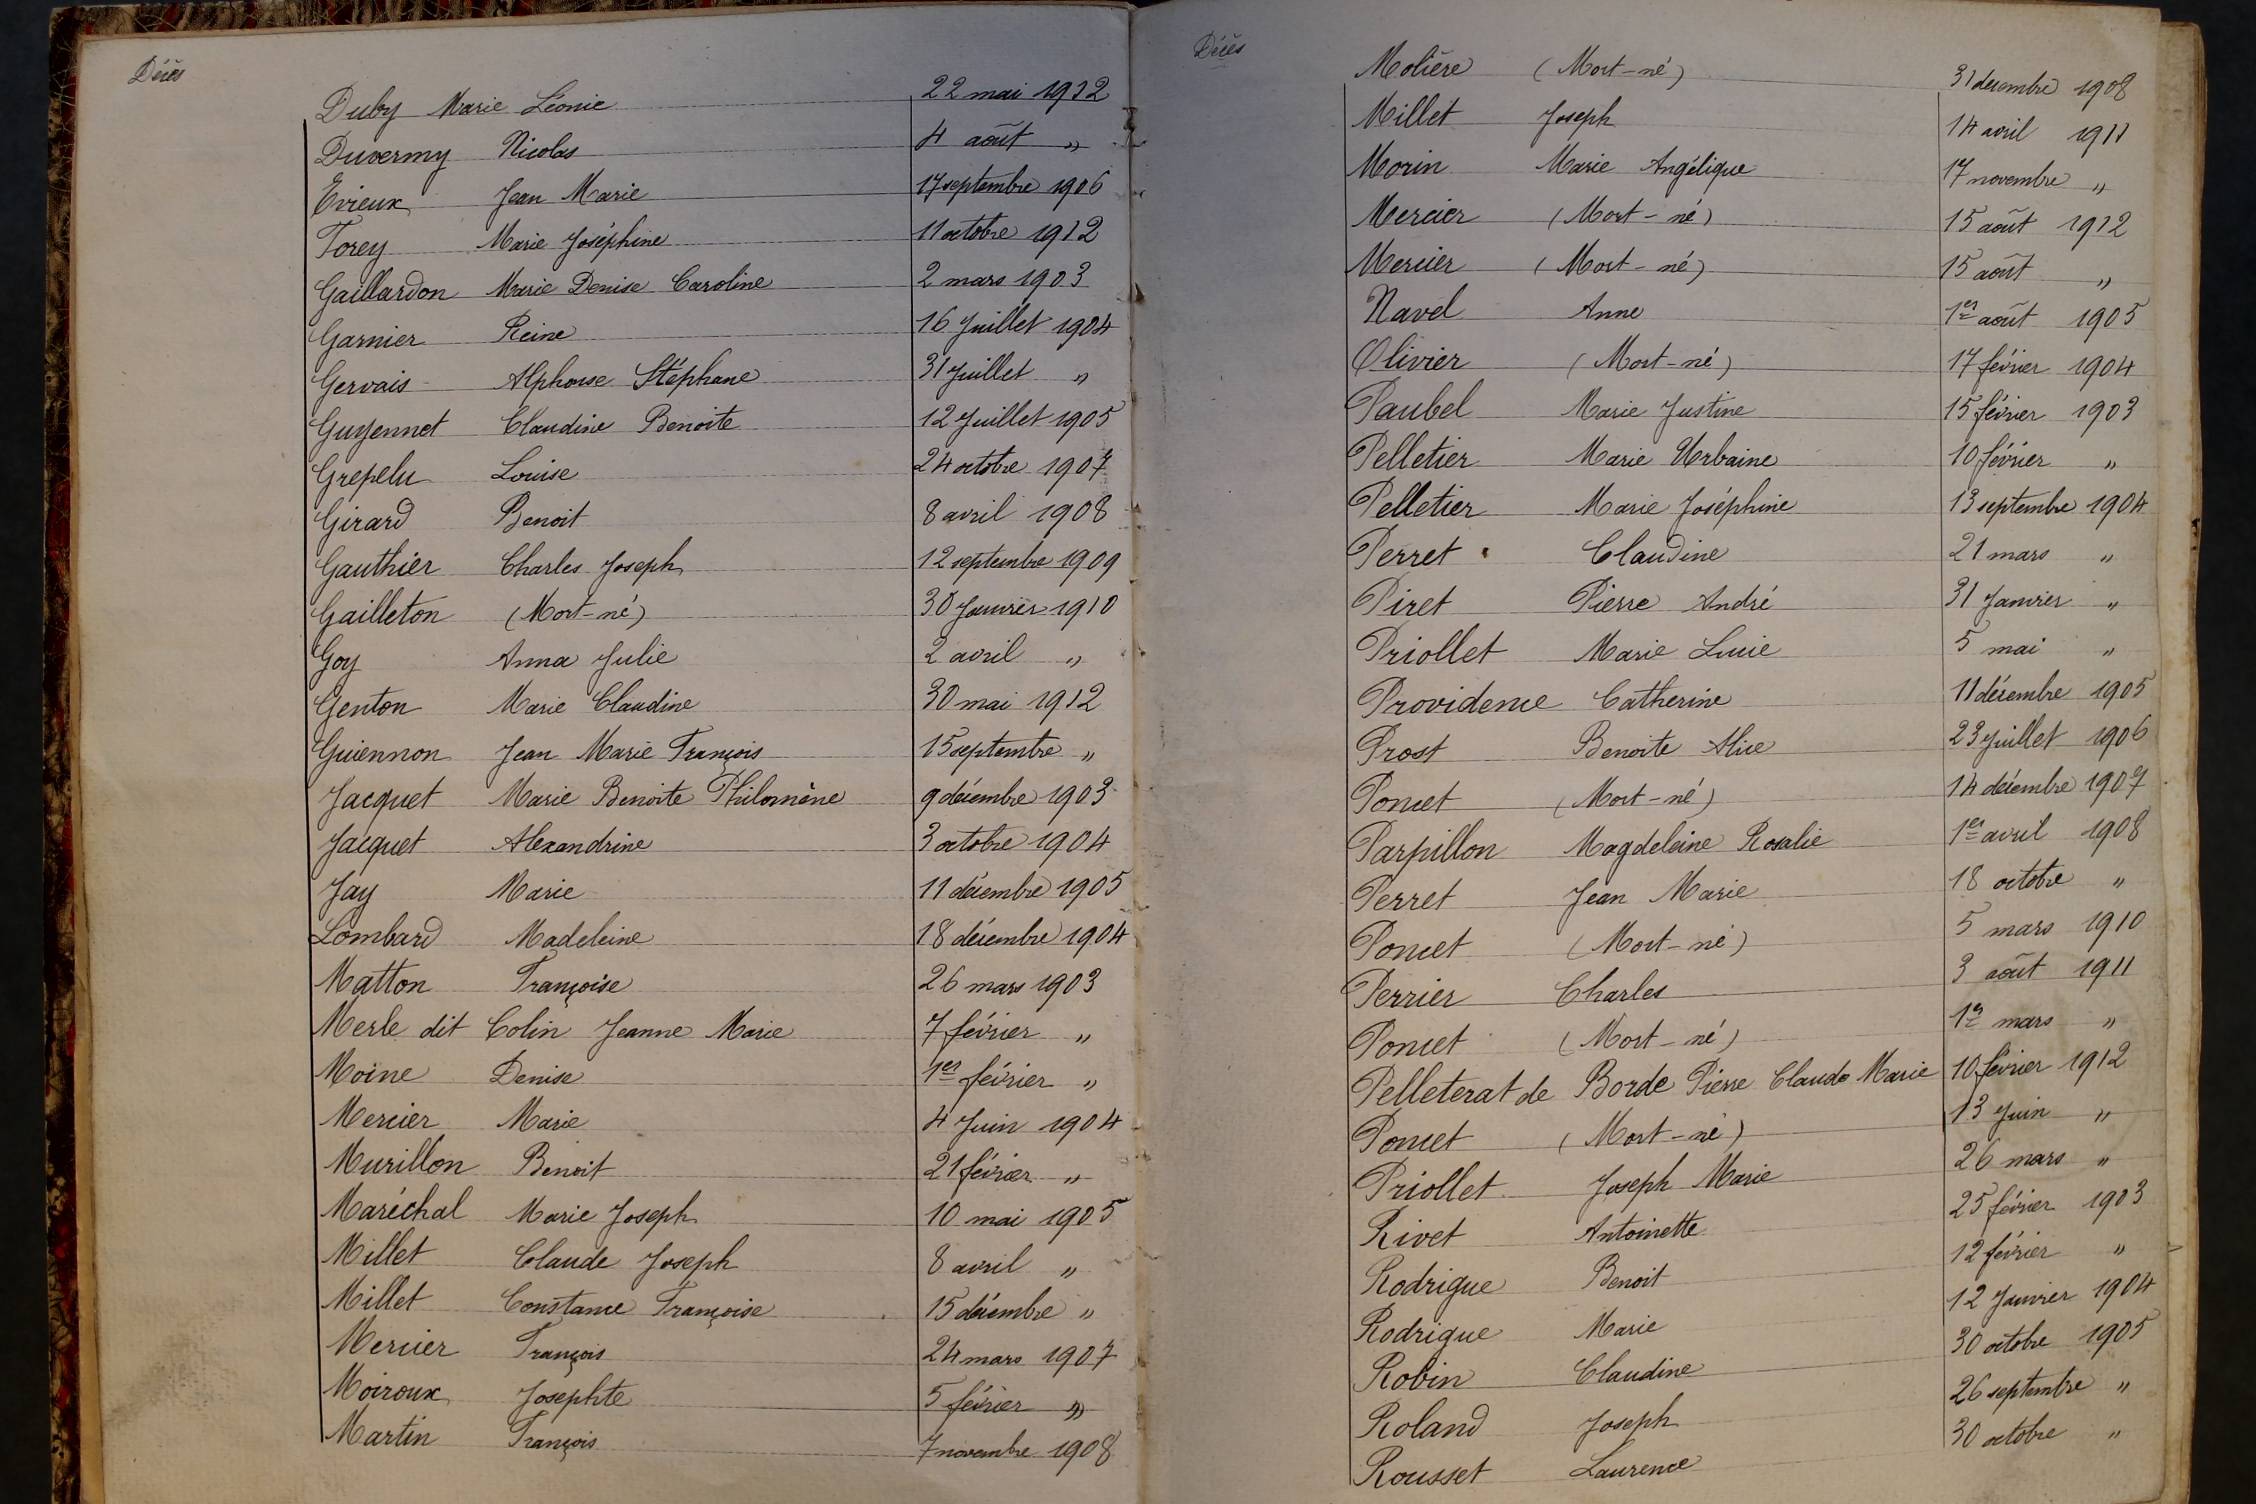 Décès
Duby Marie Léonie 22 mai 1912
Duvermy Nicolas 4 août "
Evieux Jean Marie 17 septembre 1906
Forey Marie Joséphine 11 octobre 1912
Gaillardon Marie Denise Caroline 2 mars 1903
Garnier Reine 16 Juillet 1904
Gervais Alphonse Stéphane 31 Juillet "
Guyennet Claudine Benoite 12 Juillet 1905
Grepelu Louise 24 octobre 1907
Girard Benoit 8 avril 1908
Gauthier Charles Joseph 12 septembre 1909
Gailleton (Mort-né) 30 Janvier 1910
Goy Anna Julie 2 avril "
Genton Marie Claudine 30 mai 1912
Guiennon Jean Marie François 15 septembre "
Jacquet Marie Benoite Philomène 9 décembre 1903
Jacquet Alexandrine 3 octobre 1904
Jay Marie 11 décembre 1905
Lombard Madeleine 18 décembre 1904
Matton Françoise 26 mars 1903
Merle dit Colin Jeanne Marie 7 février "
Moine Denise 1er février "
Mercier Marie 4 Juin 1904
Murillon Benoit 21 février "
Maréchal Marie Joseph 10 mai 1905
Millet Claude Joseph 8 avril "
Millet Constance Françoise 15 décembre "
Mercier François 24 mars 1907
Moiroux Josephte 5 février "
Martin François 7 novembre 1908
Décès
Molière (Mort-né) 31 décembre 1908
Millet Joseph 14 avril 1911
Morin Marie Angélique 17 novembre "
Mercier (Mort-né) 15 août 1912
Mercier (Mort-né) 15 août "
Navel Anne 1er août 1905
Olivier (Mort-né) 17 février 1904
Paubel Marie Justine 15 février 1903
Pelletier Marie Urbaine 10 février "
Pelletier Marie Joséphine 13 septembre 1904
Perret Claudine 21 mars "
Piret Pierre André 31 Janvier "
Priollet Marie Lucie 5 mai "
Providence Catherine 11 décembre 1905
Prost Benoite Alice 23 Juillet 1906
Poncet (Mort-né) 14 décembre 1907
Parpillon Magdeleine Rosalie 1er avril 1908
Perret Jean Marie 18 octobre "
Poncet (Mort-né) 5 mars 1910
Perrier Charles 3 août 1911
Poncet (Mort-né) 1er mars "
Pelleterat de Borde Pierre Claude Marie 10 février 1912
Poncet (Mort-né) 13 Juin "
Priollet Joseph Marie 26 mars "
Rivet Antoinette 25 février 1903
Rodrigue Benoit 12 février "
Rodrigue Marie 12 Janvier 1904
Robin Claudine 30 octobre 1905
Roland Joseph 26 septembre "
Rousset Laurence 30 octobre "